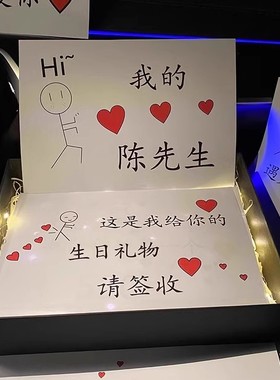 Hi~
我的
陈先生
这是我给你的
生日礼物
请签收
你
遇